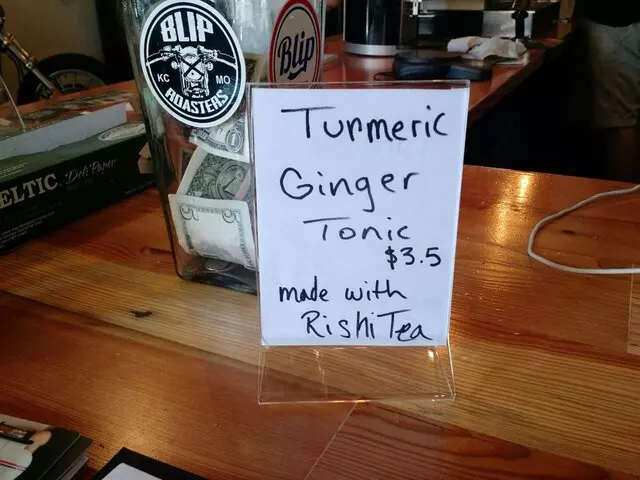 BLIP
KC MO
ROASTERS
Blip
ELTIC Deli Paper
Turmeric
Ginger
Tonic
$3.5
made with
Rishi Tea